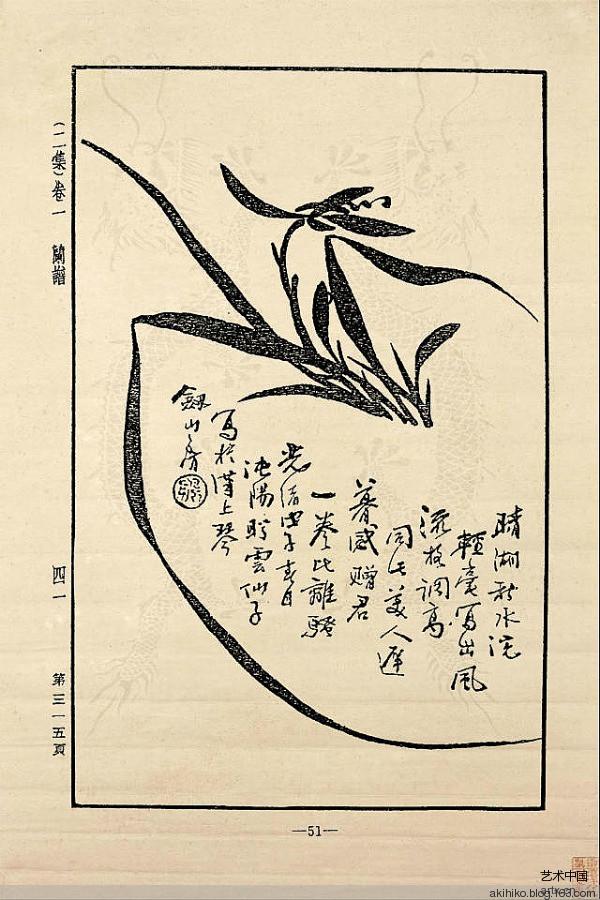 (二集)卷一 蘭譜
四一
第三一五頁
晴湖水浣
輕毫寫出風
流格調高
同此美人遲
暮感贈君
一卷比離騷
光緒戊子春日
陽雲仙子
寫於漢上琴
劍山房
—51—
艺术中国
akihiko.blog.163.com